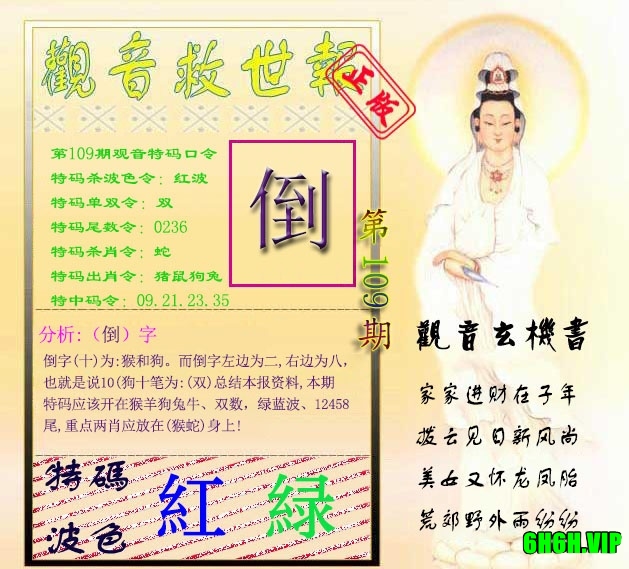 觀音救世報
正版
第109期观音特码口令
特码杀波色令：红波
特码单双令：双
特码尾数令：0236
特码杀肖令：蛇
特码出肖令：猪鼠狗兔
特中码令：09.21.23.35
倒
第109期
分析:（倒）字
倒字(十)为:猴和狗。而倒字左边为二,右边为八，
也就是说10(狗十笔为:(双)总结本报资料,本期
特码应该开在猴羊狗兔牛、双数，绿蓝波、12458
尾,重点两肖应放在(猴蛇)身上!
特碼
波色
紅 緑
觀音玄機書
家家进财在子年
拨云见日新风尚
美女又怀龙凤胎
荒郊野外雨纷纷
6H6H.VIP